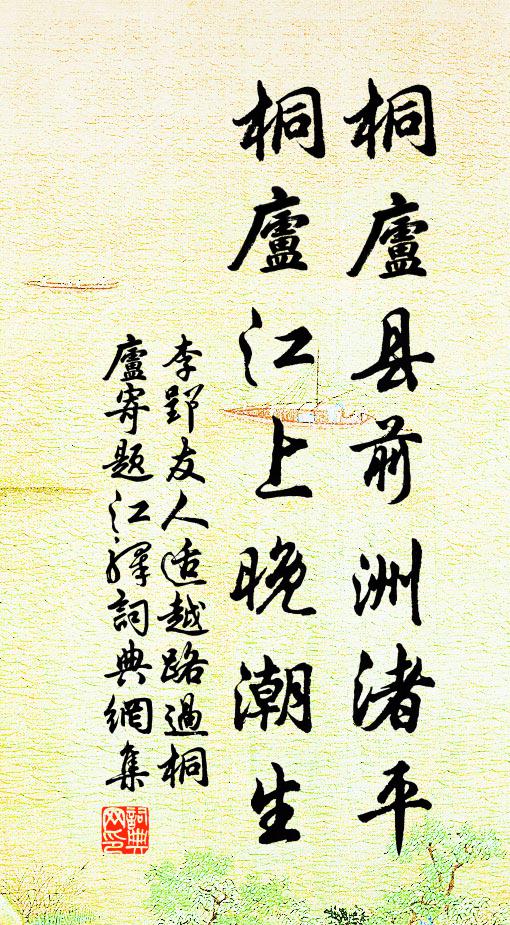 桐廬县前洲渚平
桐廬江上晚潮生
李郢友人适越路過桐
廬寄题江驛詞典網集
詞典网印